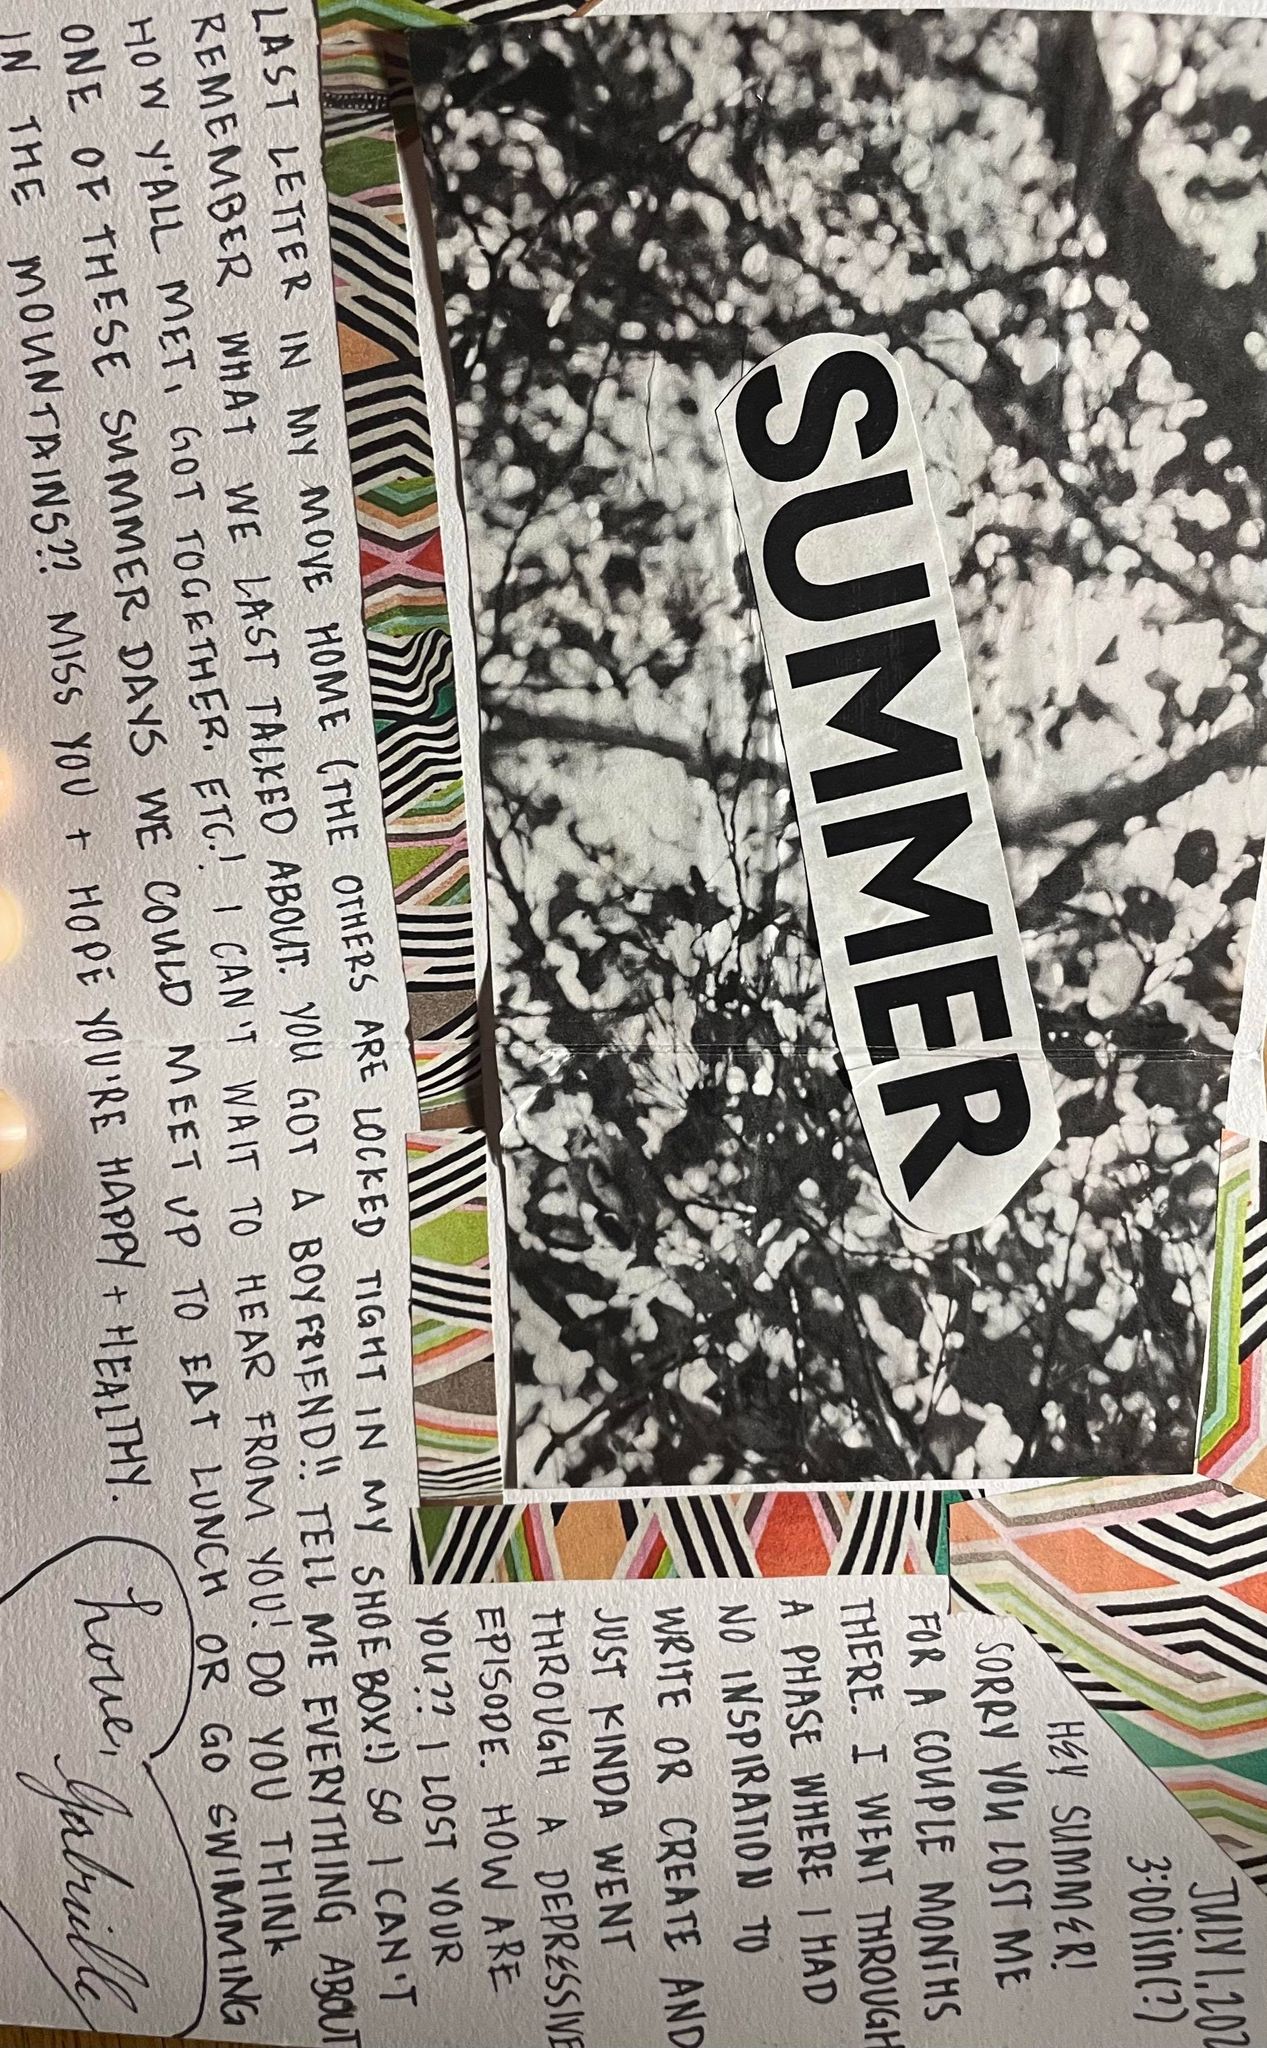 SUMMER
JULY 1, 202
3:00ish(?)
HEY SUMMER!
SORRY YOU LOST ME
FOR A COUPLE MONTHS
THERE. I WENT THROUGH
A PHASE WHERE I HAD
NO INSPIRATION TO
WRITE OR CREATE AND
JUST KINDA WENT
THROUGH A DEPRESSIVE
EPISODE. HOW ARE
YOU?? I LOST YOUR
LAST LETTER IN MY MOVE HOME (THE OTHERS ARE LOCKED TIGHT IN MY SHOE BOX!) SO I CAN'T
REMEMBER WHAT WE LAST TALKED ABOUT. YOU GOT A BOYFRIEND!! TELL ME EVERYTHING ABOUT
HOW Y'ALL MET, GOT TOGETHER, ETC.! I CAN'T WAIT TO HEAR FROM YOU! DO YOU THINK
ONE OF THESE SUMMER DAYS WE COULD MEET UP TO EAT LUNCH OR GO SWIMMING
IN THE MOUNTAINS?? MISS YOU + HOPE YOU'RE HAPPY + HEALTHY.
Love,
Gabrielle